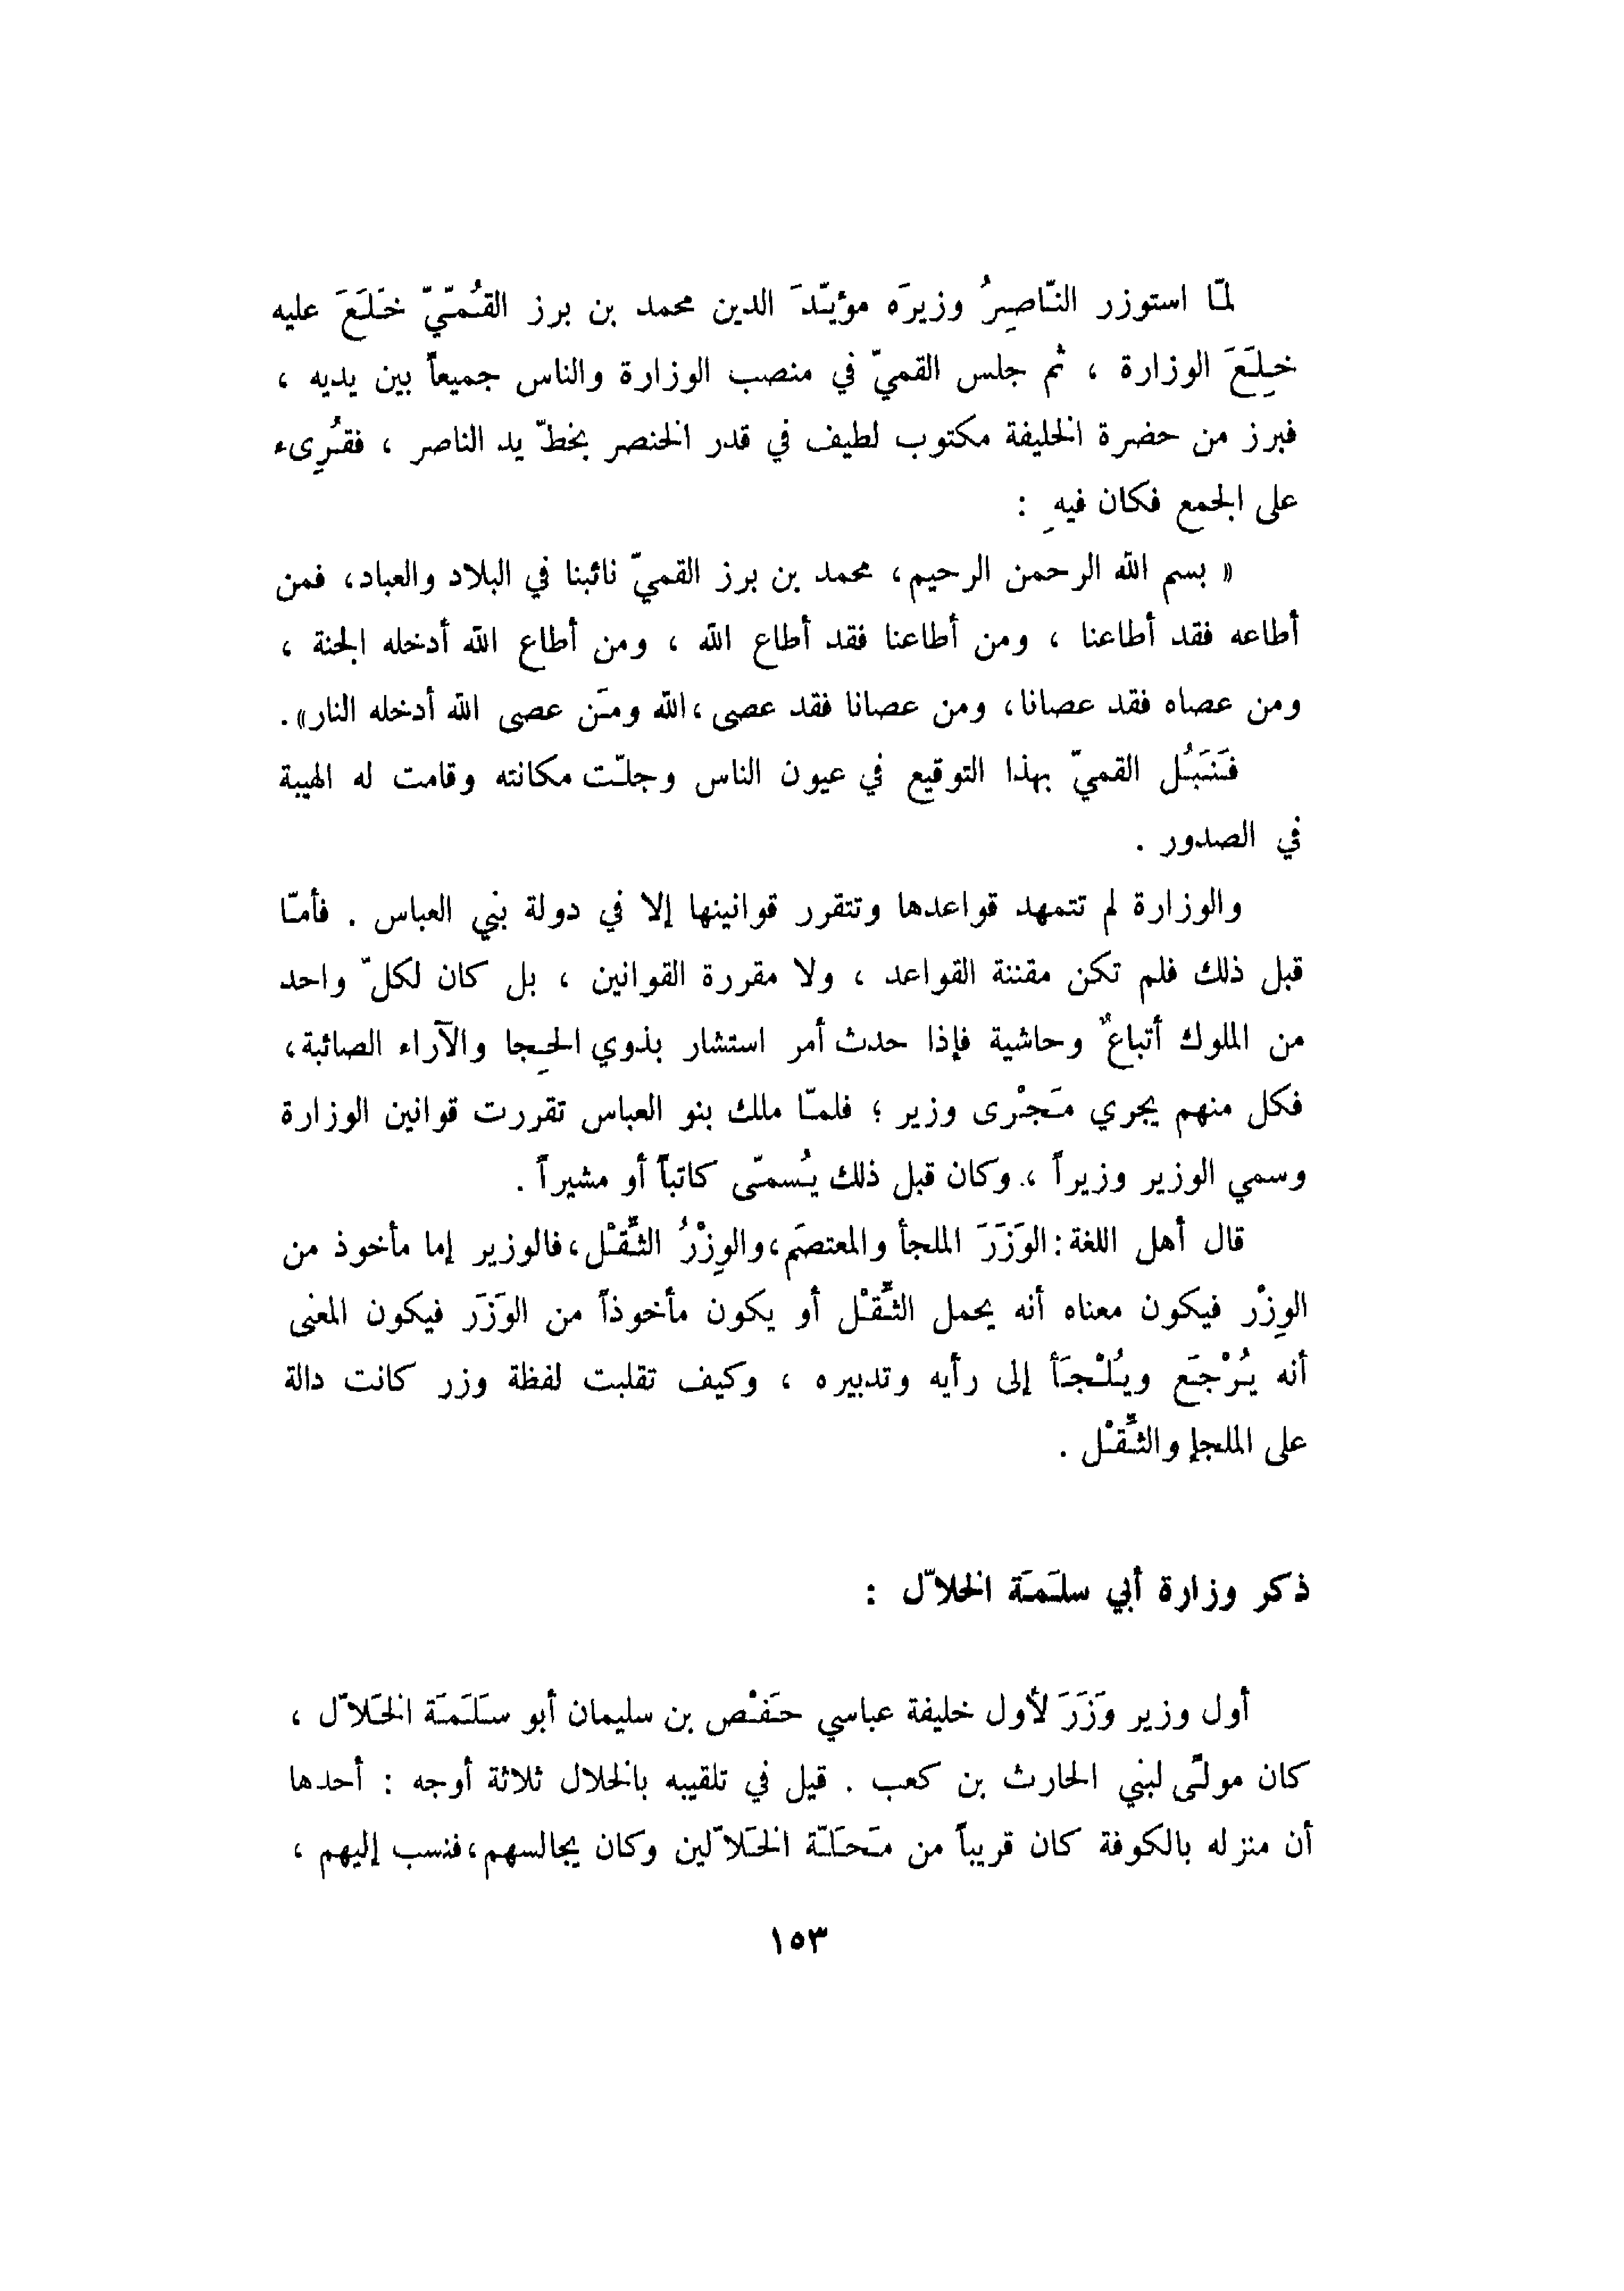 لمّا استوزر النّاصِرُ وزيرَه مؤيّدَ الدين محمد بن برز القُمّيّ خَلَعَ عليه
خِلَعَ الوزارة ، ثم جلس القميّ في منصب الوزارة والناس جميعاً بين يديه ،
فبرز من حضرة الخليفة مكتوب لطيف في قدر الخنصر بخطّ يد الناصر ، فقُرِىء
على الجمع فكان فيهِ :
« بسم الله الرحمن الرحيم، محمد بن برز القميّ نائبنا في البلاد والعباد، فمن
أطاعه فقد أطاعنا ، ومن أطاعنا فقد أطاع الله ، ومن أطاع الله أدخله الجنة ،
ومن عصاه فقد عصانا، ومن عصانا فقد عصى ،الله ومَن عصى الله أدخله النار».
فَنَبَُل القميّ بهذا التوقيع في عيون الناس وجلّت مكانته وقامت له الهيبة
في الصدور .
والوزارة لم تتمهد قواعدها وتتقرر قوانينها إلا في دولة بني العباس . فأمّا
قبل ذلك فلم تكن مقننة القواعد ، ولا مقررة القوانين ، بل كان لكلّ واحد
من الملوك أتباعٌ وحاشية فإذا حدث أمر استشار بذوي الحِجا والآراء الصائبة،
فكل منهم يجري مَجْرى وزير ؛ فلمّا ملك بنو العباس تقررت قوانين الوزارة
وسمي الوزير وزيراً ،. وكان قبل ذلك يُسمّى كاتباً أو مشيراً .
قال أهل اللغة : الوَزَرَ الملجأ والمعتصَم،والوِزْرُ الثِّقْل،فالوزير إما مأخوذ من
الوِزْر فيكون معناه أنه يحمل الثِّقْل أو يكون مأخوذاً من الوَزَر فيكون المعنى
أنه يُرْجَع ويُلْجَأ إلى رأيه وتدبيره ، وكيف تقلبت لفظة وزر كانت دالة
على الملجإ والثِّقْل .
ذكر وزارة أبي سلَمَة الخلاّل :
أول وزير وَزَرَ لأول خليفة عباسي حَفْص بن سليمان أبو سَلَمَة الخَلاّل ،
كان مولًى لبني الحارث بن كعب . قيل في تلقيبه بالخلال ثلاثة أوجه : أحدها
أن منزله بالكوفة كان قريباً من مَحَلّة الخَلاّلين وكان يجالسهم،فنسب إليهم ،
١٥٣